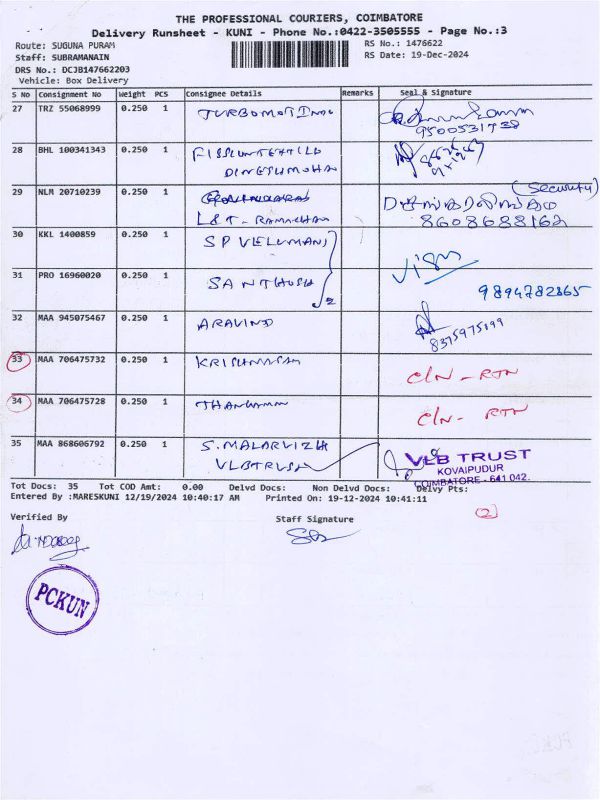 THE PROFESSIONAL COURIERS, COIMBATORE
Delivery Runsheet - KUNI - Phone No.:0422-3505555 - Page No.:3
Route: SUGUNA PURAM
RS No.: 1476622
Staff: SUBRAMANAIN
RS Date: 19-Dec-2024
DRS No.: DCJB147662203
Vehicle: Box Delivery
S No Consignment No Weight PCS Consignee Details Remarks Seal & Signature
27 TRZ 55068999 0.250 1
9500531738
28 BHL 100341343 0.250 1
DINESHMOHAN
29 NLM 20710239 0.250 1 (Security)
L&T - RAMACHAN 8608688162
30 KKL 1400859 0.250 1 SP VELUMANI
31 PRO 16960020 0.250 1 SANTHOSH 2 9894782865
32 MAA 945075467 0.250 1 ARAVIND
8375975199
33 MAA 706475732 0.250 1 KRISHNASAM C/N - RTN
34 MAA 706475728 0.250 1 C/N - RTN
35 MAA 868606792 0.250 1 S. MALARVIZH
VLB TRUST VLB TRUST
KOVAIPUDUR
COIMBATORE - 641 042.
Tot Docs: 35 Tot COD Amt: 0.00 Delvd Docs: Non Delvd Docs: Delvy Pts:
Entered By :MARESKUNI 12/19/2024 10:40:17 AM Printed On: 19-12-2024 10:41:11
2
Verified By
Staff Signature
PCKUN